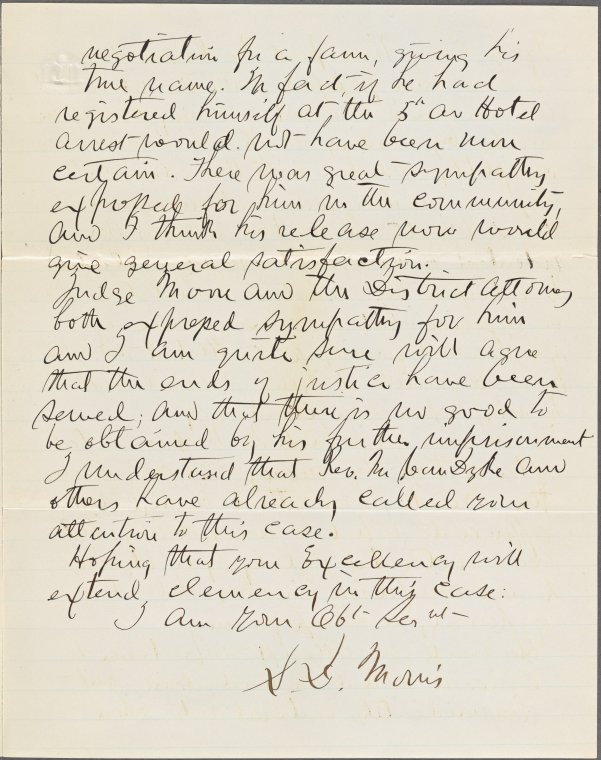 negotiation for a farm, giving his
true name. In fact, if he had
registered himself at the 5th av Hotel
arrest would not have been more
certain. There was great sympathy
expressed for him in the community,
and I think his release now would
give general satisfaction.
Judge Moore and the District Attorney
both expressed sympathy for him
and I am quite sure will agree
that the ends of justice have been
served; and that there is no good to
be obtained by his further imprisonment
I understand that Rev. Mr Van Dyke and
others have already called your
attention to this case.
Hoping that your Excellency will
extend clemency in this case.
I am your Obt Servt
S. D. Morris